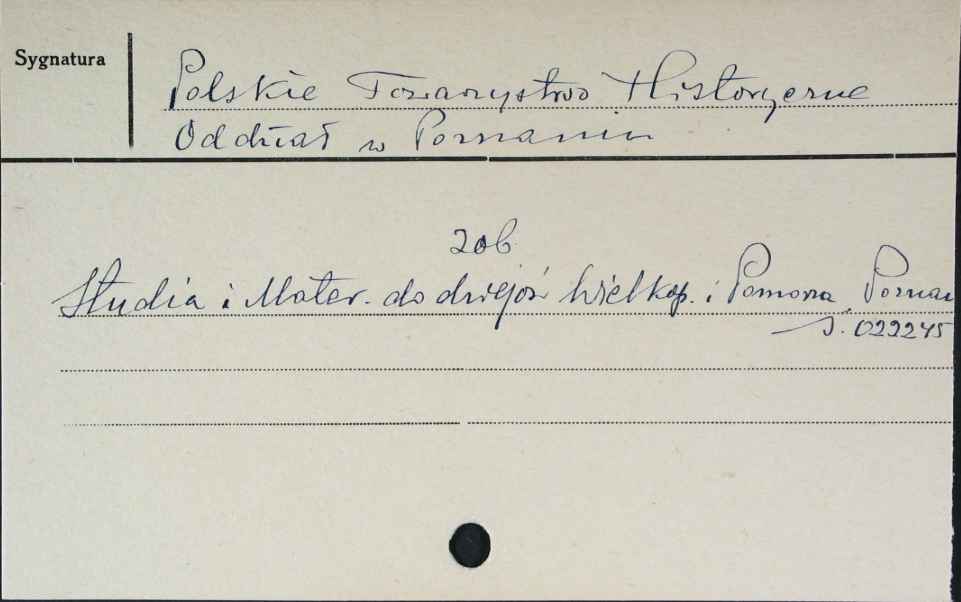 Sygnatura
Polskie Towarzystwo Historyczne
Oddział w Poznaniu
zob
Studia i Mater. do dziejów Wielkop. i Pomorza, Poznań
S. 022245